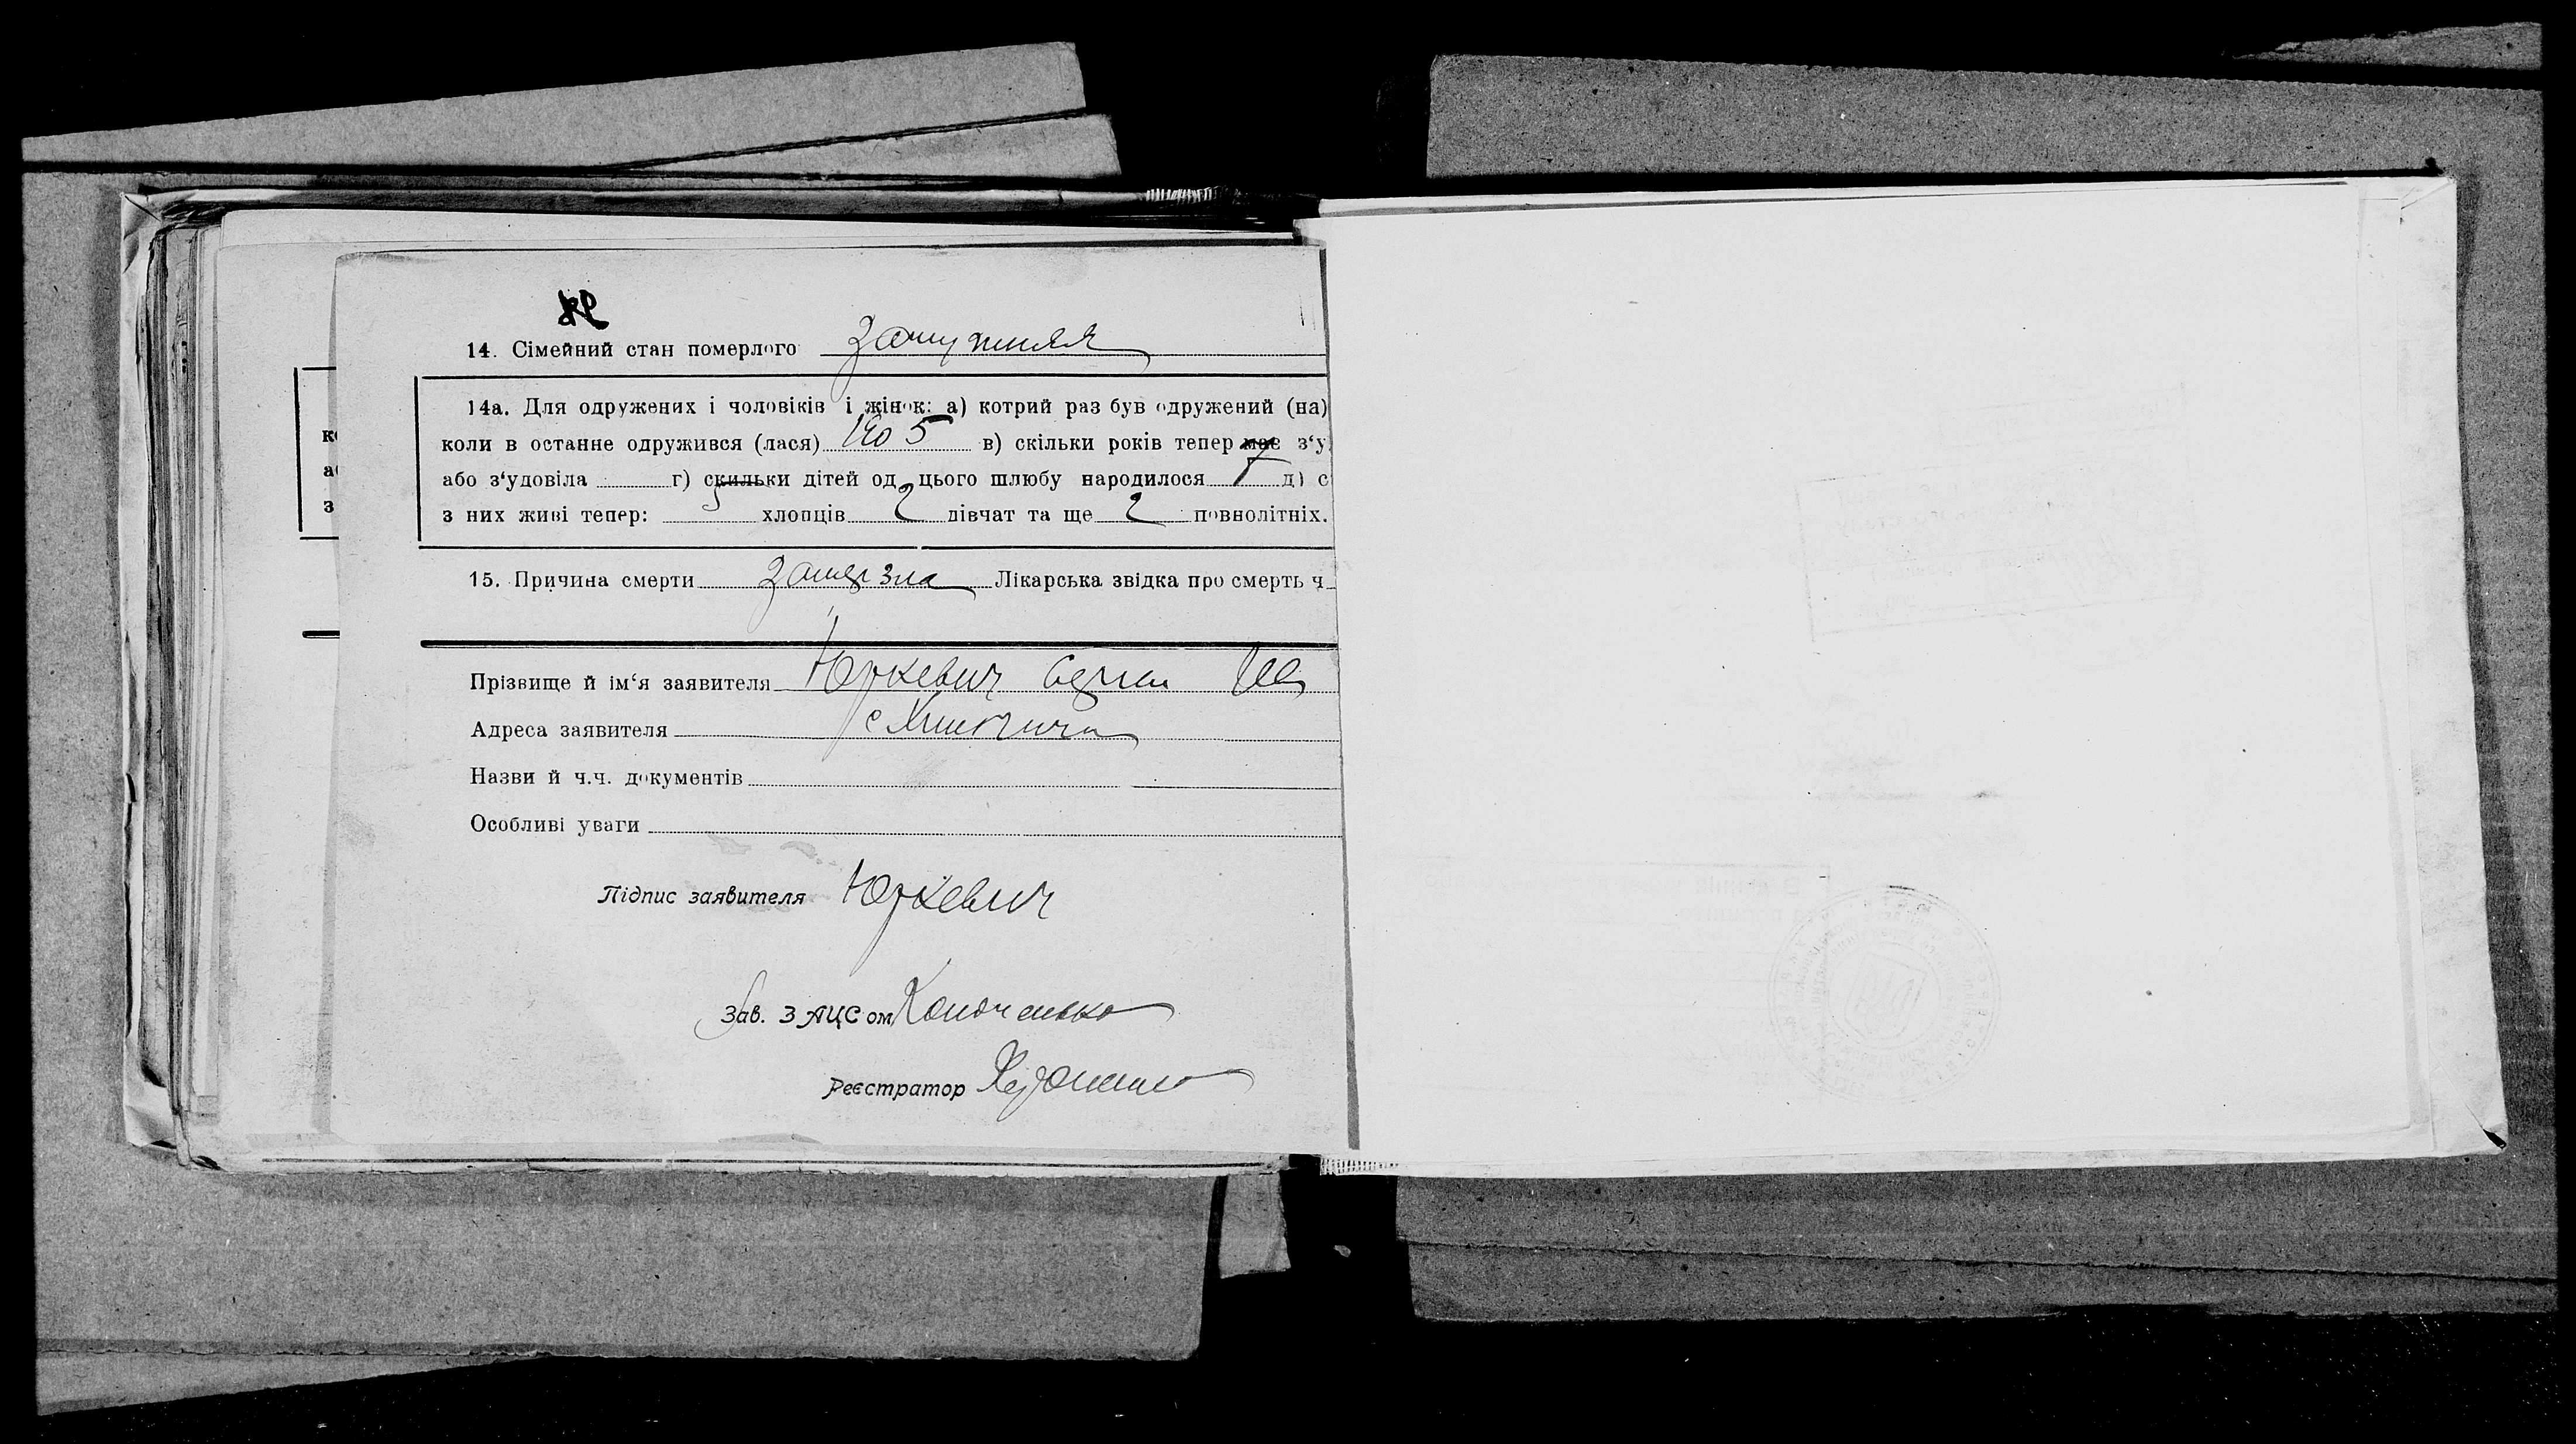 14. Сімейний стан померлого замужняя
14а. Для одружених і чоловіків і жінок: а) котрий раз був одружений (на)
коли в останне одружився (лася) 1905 в) скільки років тепер має з'у
або з'удовіла г) скильки дітей од цього шлюбу народилося 7 д) с
з них живі тепер: 5 хлопців 2 дівчат та ще 2 повнолітніх.
15. Причина смерти замерзла Лікарська звідка про смерть ч.
Прізвище й ім'я заявителя Юркевич
Адреса заявителя с
Назви й ч.ч. документів
Особливі уваги
Підпис заявителя Юркевич
Зав. ЗАЦСом
Реєстратор